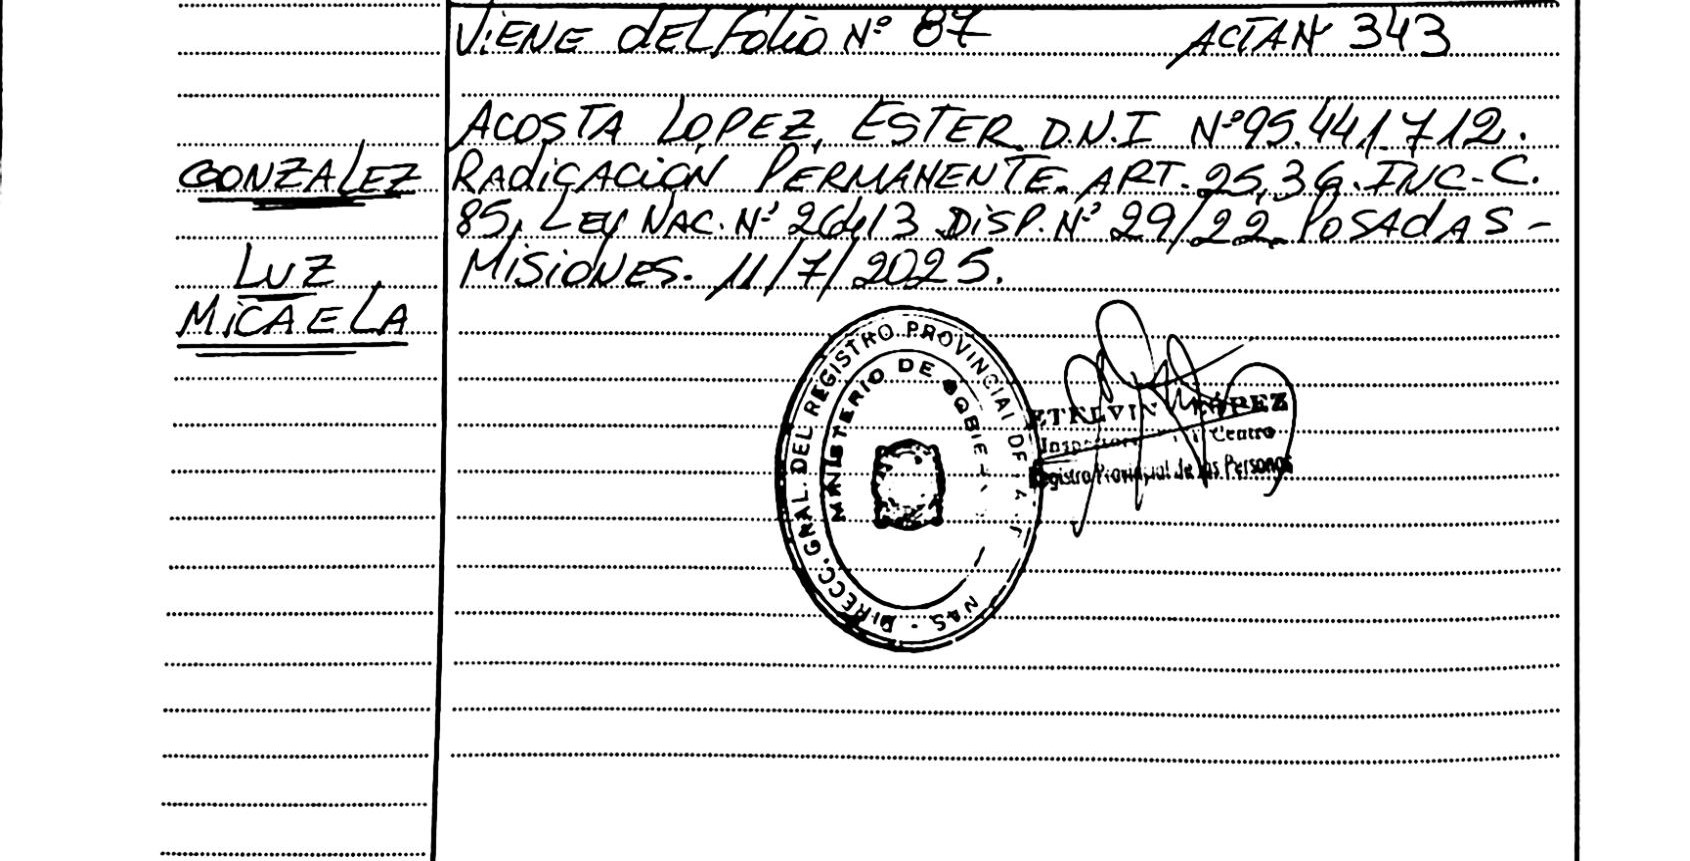 ViENE dEL Folio Nº 87 ACTA Nº 343
ACOSTA LOPEZ, ESTER D.N.I Nº 95.441.712.
RAdiCACiÓN PERMANENTE. ART. 25, 36. INC-C.
85, LEY NAC. Nº 26413 DiSP. Nº 29/22 POSAdAS -
MiSiONES. 11/7/2025.
GONZALEZ
LUZ
MiCAELA
DIRECC. GRAL. DEL REGISTRO PROVINCIAL DE
MINISTERIO DE
LOPEZ
Centro
Registro Provincial de las Personas